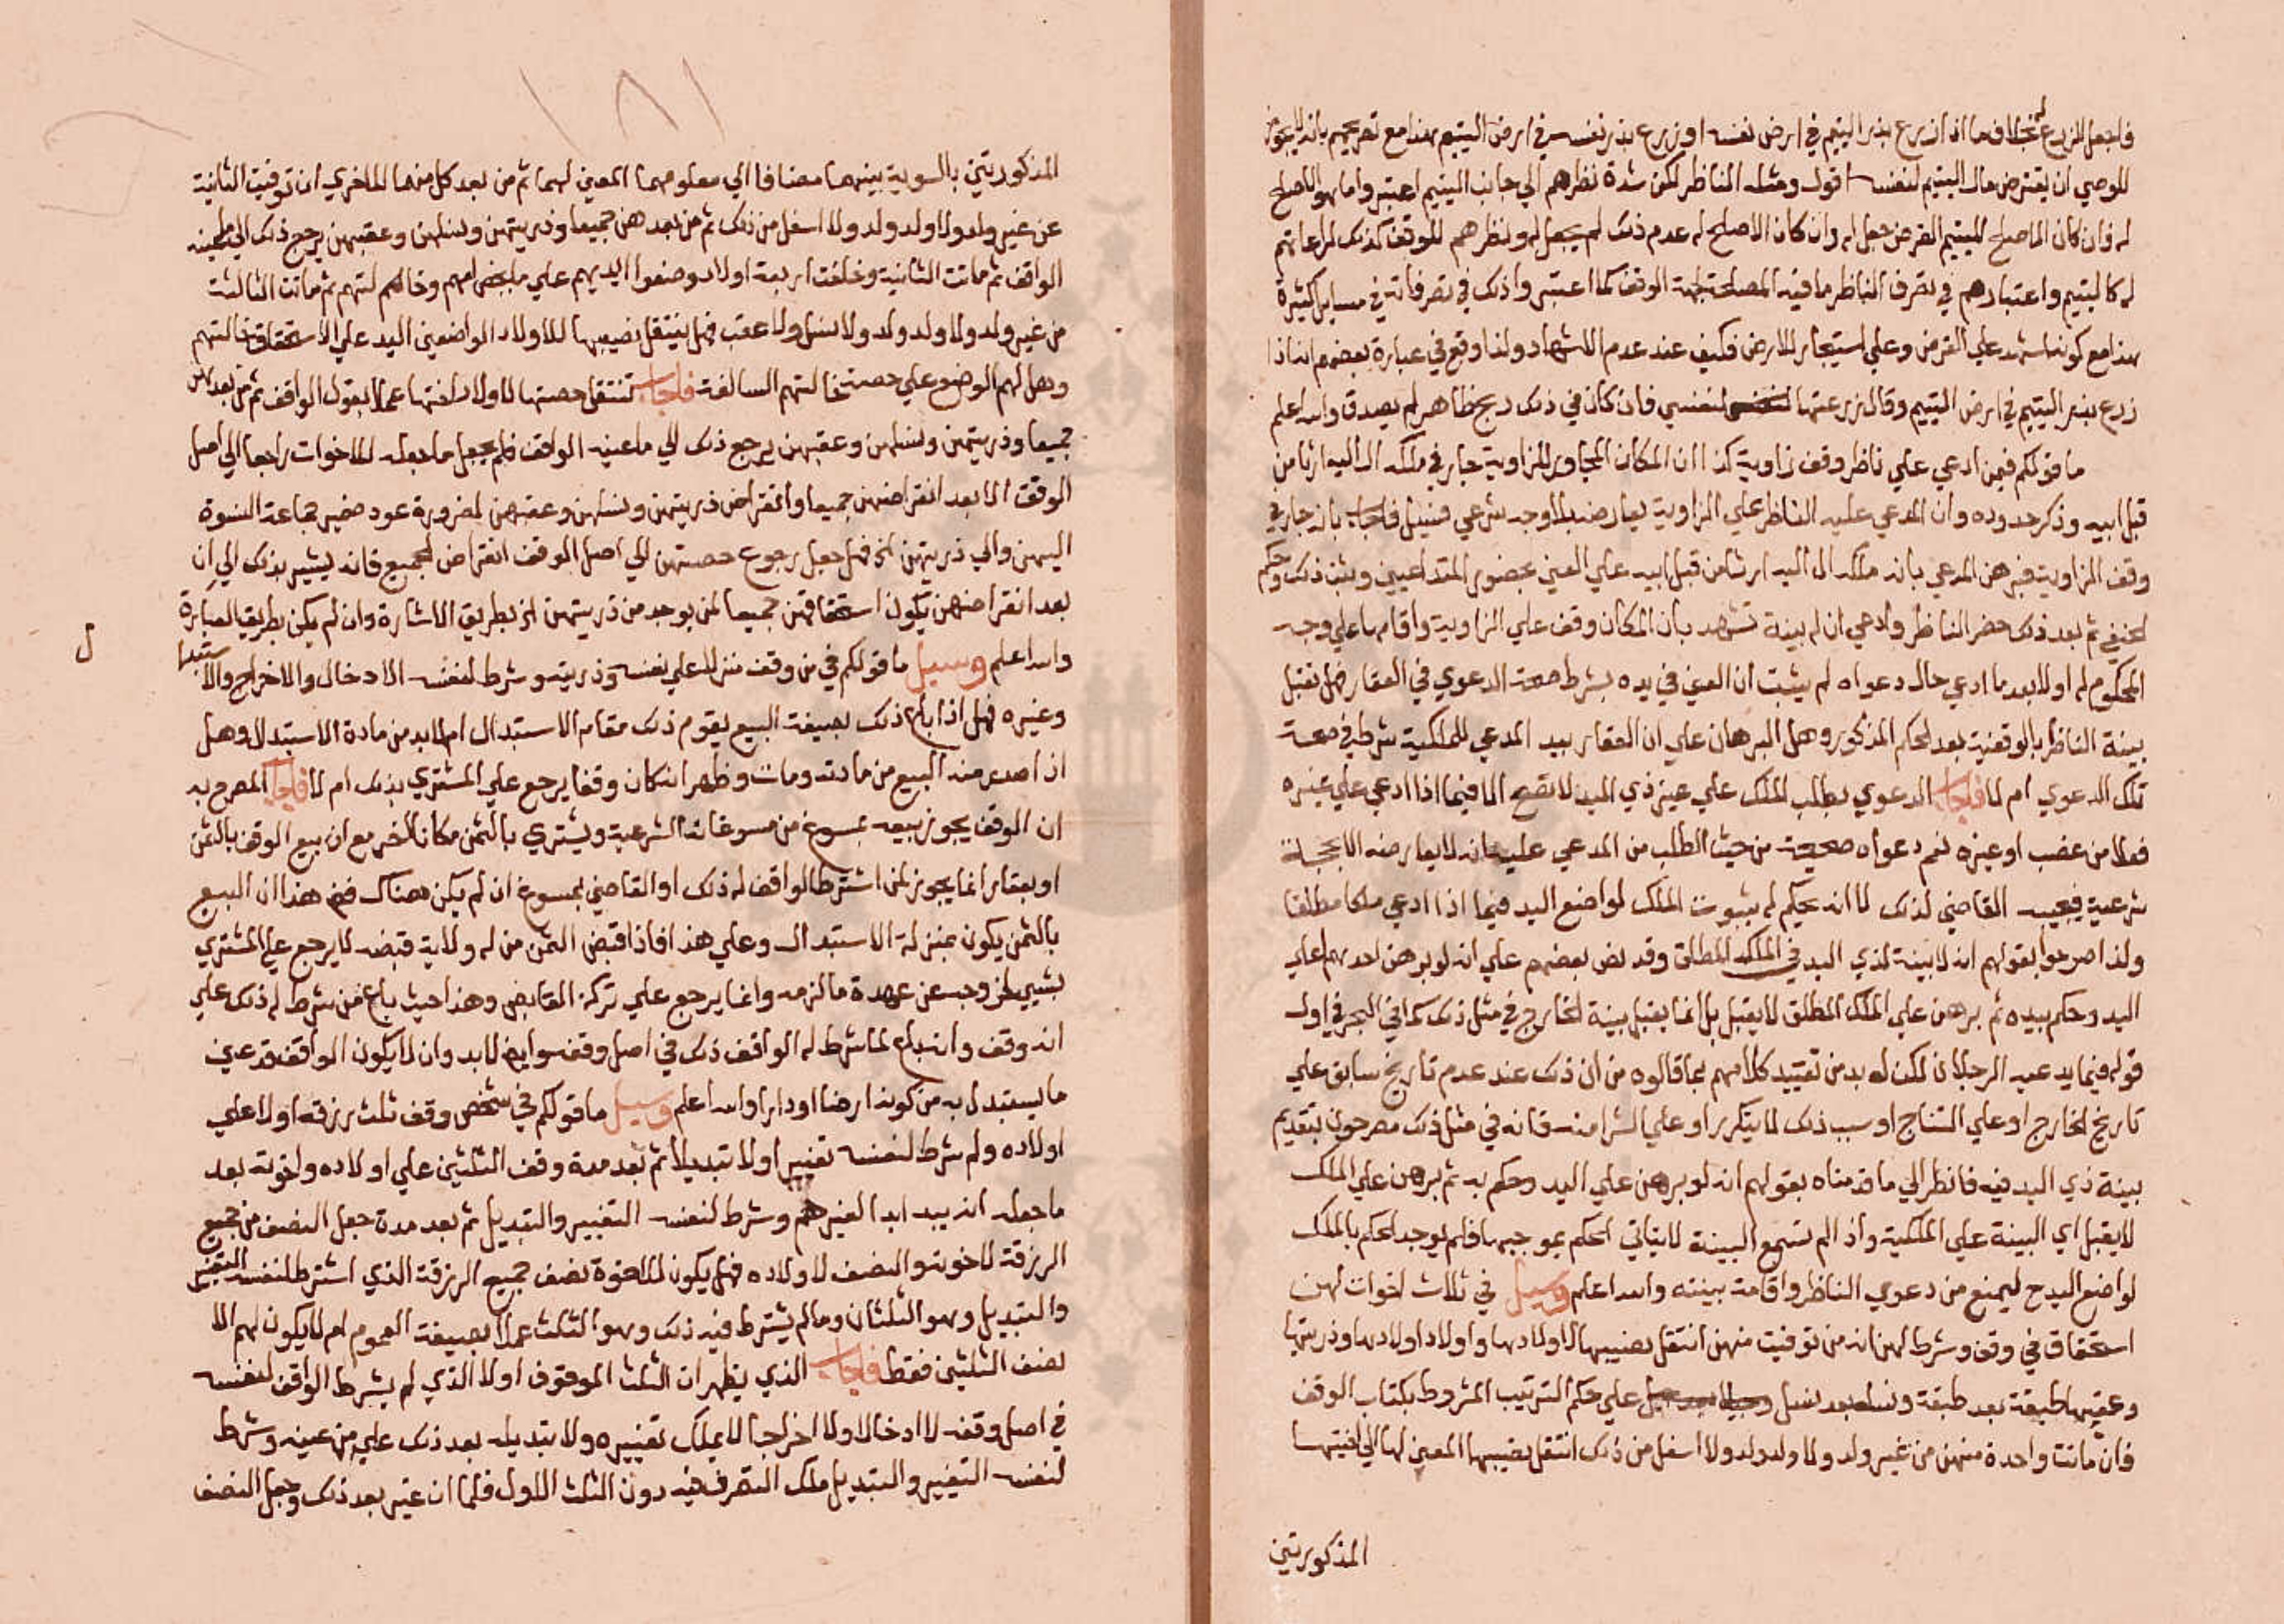 فاجعل المزدرع لم بخلاف ما اذا زرع بذر اليتيم في ارض نفسه او زرع بذر نفسه في ارض اليتيم هذا مع تصريحهم بانه لا يجوز
للوصي ان يقترض مال اليتيم لنفسه اقول ومثله الناظر لكن شدة نظرهم الي جانب اليتيم اعتبروا ما هو الاصلح
له فان كان الاصلح لليتيم القرض جعل له وان كان الاصلح له عدم ذلك لم يجعل له ونظرهم للوقف كذلك لمراعاتهم
له كاليتيم واعتبارهم في تصرف الناظر ما فيه المصلحة لجهة الوقف كما اعتبروا ذلك في تصرفاته في مسايل كثيرة
هذا مع كونه اشهد علي القرض وعلي استيجار الارض فكيف عند عدم الاشهاد ولذا وقع في عبارة بعضهم انه اذا
زرع ببذر اليتيم في ارض اليتيم وقال زرعتها لنفسي فان كان في ذلك ربح ظاهر لم يصدق والله اعلم
ما قولكم فيمن ادعي علي ناظر وقف زاوية كذا ان المكان المجاور للزاوية جار في ملكه ال اليه ارثا من
قبل ابيه وذكر حدوده وان المدعي عليه الناظر علي الزاوية يعارضه بلا وجه شرعي فسيل فاجاب بانه جار في
وقف الزاوية فبرهن المدعي بانه ملكه ال اليه ارثا من قبل ابيه علي العين بحضور المتداعيين وثبت ذلك وحكم
الحنفي ثم بعد ذلك حضر الناظر وادعي ان له بينة تشهد بان المكان وقف علي الزاوية واقامها علي وجه
المحكوم له اولا بعد ما ادعي حال دعواه لم يثبت ان العين في يده بشرط صحة الدعوي في العقار فهل تقبل
بينة الناظر بالوقفية بعد الحكم المذكور وهل البرهان علي ان العقار بيد المدعي للملكية شرط في صحة
تلك الدعوي ام لا فاجاب الدعوي بطلب الملك علي غير ذي اليد لا تصح الا فيما اذا ادعي علي غيره
فعلا من غصب او غيره نعم دعواه صحيحة من حيث الطلب من المدعي عليه انه لا يعارضه الا بحجة
شرعية فيجيب القاضي لذلك لا انه يحكم له بثبوت الملك لواضع اليد فيما اذا ادعي ملكا مطلقا
ولذا صرحوا بقولهم انه لا بينة لذي اليد في الملك المطلق وقد نص بعضهم علي انه لو برهن احدهما علي
اليد وحكم بيده ثم برهن علي الملك المطلق لا يقبل بل انما يقبل بينة الخارج في مثل ذلك كما في البحر في اول
قوله فيما يدعيه الرجلان لكن لا بد من تقييد كلامهم بما قالوه من ان ذلك عند عدم تاريخ سابق علي
تاريخ الخارج او علي النتاج او سبب ذلك لا يتكرر او علي الشرا منه فانه في مثل ذلك مصرحون بتقديم
بينة ذي اليد فيه فانظر الي ما قدمناه بقولهم انه لو برهن علي اليد وحكم به ثم برهن علي الملك
لا يقبل اي البينة علي الملكية واذ الم تسمع البينة لا يتاتي الحكم بموجبها فلم يوجد الحكم بالملك
لواضع اليد ح ليمنع من دعوي الناظر واقامة بينته والله اعلم وسيل في ثلاث اخوات لهن
استحقاق في وقف وشرط لهن انه من توفيت منهن انتقل نصيبها لاولادها واولاد اولادها وذريتها
وعقبها طبقة بعد طبقة ونسله بعد نسل علي حكم الترتيب المشروط بكتاب الوقف
فان ماتت واحدة منهن من غير ولد ولا ولد ولد ولا اسفل من ذلك انتقل نصيبها المعين لها الي اختيها
المذكورتين
١٨١
المذكورتين بالسوية بينهما مضافا الي معلومهما المعين لهما ثم من بعد كل منهما للاخري ان توفيت الثانية
عن غير ولد ولا ولد ولد ولا اسفل من ذلك ثم من بعدهن جميعا وذريتهن ونسلهن وعقبهن يرجع ذلك الي ما عينه
الواقف ثم ماتت الثانية وخلفت اربعة اولاد وضعوا ايديهم علي ما يخص امهم وخالهم لتهم ثم ماتت الثالثة
من غير ولد ولا ولد ولد ولا نسل ولا عقب فهل ينتقل نصيبها للاولاد الواضعين اليد علي الاستحقاق خالتهم
وهل لهم الوضع علي حصة خالتهم السالفة فاجاب تنتقل حصتها لاولاد اختها عملا بقول الواقف ثم من بعدهن
جميعا وذريتهن ونسلهن وعقبهن يرجع ذلك الي ما عينه الواقف فلم يجعل ما جعله للاخوات راجعا الي اصل
الوقف الا بعد انقراضهن جميعا وانقراض ذريتهن ونسلهن وعقبهن لضرورة عود ضمير جماعة النسوة
اليهن والي ذريتهن الخ فهل جعل رجوع حصتهن الي اصل الوقف انقراض الجميع فانه يشير بذلك الي ان
بعد انقراضهن يكون استحقاقهن جميعا لمن يوجد من ذريتهن الخ بطريق الاشارة وان لم يكن بطريق العبارة
والله اعلم وسيل ما قولكم في من وقف منزلا علي نفسه وذريته وشرط لنفسه الادخال والاخراج والاستبدال
وغيره فهل اذا باع ذلك بصيغة البيع يقوم ذلك مقام الاستبدال ام لا بد من مادة الاستبدال وهل
اذا صدر منه البيع من مادته ومات وظهر انه كان وقفا يرجع علي المشتري بذلك ام لا فاجاب المصرح به
ان الوقف يجوز بيعه بمسوغ من مسوغاته الشرعية ويشتري بالثمن مكانا اخر مع ان بيع الوقف بالثمن
او بعقار انما يجوز لمن اشترط الواقف له ذلك او القاضي بمسوغ ان لم يكن هناك فمع هذا ان البيع
بالثمن يكون بمنزلة الاستبدال وعلي هذا فاذا قبض الثمن من له ولاية قبضه لا يرجع علي المشتري
بشيي لخروجه عن عهدة ما لزمه وانما يرجع علي تركة القابض وهذا حيث باع من شرط له ذلك علي
انه وقف وانه باع لما شرط له الواقف ذلك في اصل وقفه وايض لا بد وان لا يكون الواقف قد عين
ما يستبدل به من كونه ارضا او دارا والله اعلم وسيل ما قولكم في شخص وقف ثلث رزقه اولا علي
اولاده ولم شرط لنفسه تغييرا ولا تبديلا ثم بعد مدة وقف الثلثين علي اولاده واخوته بعد
ما جعله انه يبد ابدا لغيرهم وشرط لنفسه التغيير والتبديل ثم بعد مدة جعل النصف من جميع
الرزقة لاخوته والنصف لاولاده فهل يكون للاخوة نصف جميع الرزقة الذي اشترط لنفسه التغيير
والتبديل وهو الثلثان وما لم يشترط فيه ذلك وهو الثلث عملا بصيغة العموم ام لا يكون لهم الا
نصف الثلثين فقط فاجاب الذي يظهر ان الثلث الموقوف اولا الذي لم يشرط الواقف لنفسه
في اصل وقفه لا ادخالا ولا اخراجا لا يملك تغييره ولا تبديله بعد ذلك علي من عينه وشرط
لنفسه التغيير والتبديل ملك التصرف فيه دون الثلث الاول فلما ان غير بعد ذلك وجعل النصف